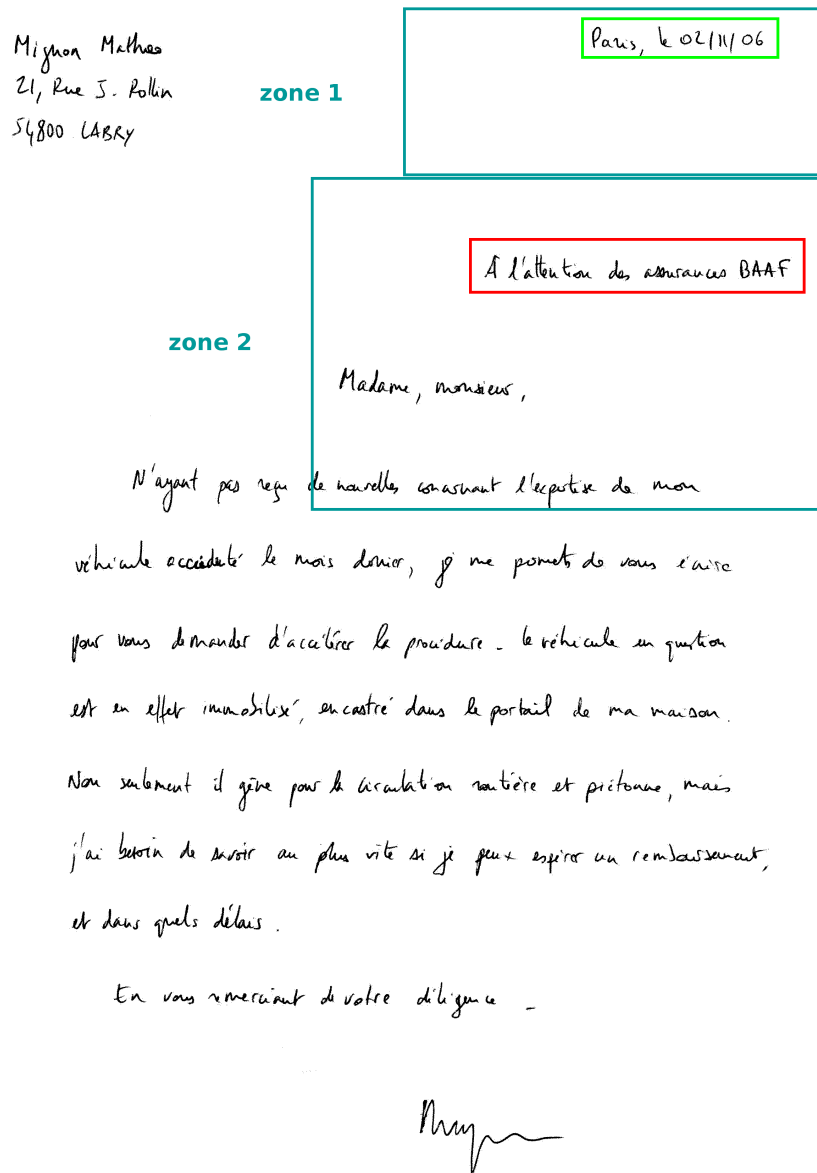 Mignon Matheo
21, Rue J. Rollin
54800 LABRY
zone 1
Paris, le 02/11/06
À l'attention des assurances BAAF
zone 2
Madame, monsieur,
N'ayant pas reçu de nouvelles concernant l'expertise de mon
véhicule accidenté le mois dernier, je me permets de vous écrire
pour vous demander d'accélérer la procédure. Le véhicule en question
est en effet immobilisé, encastré dans le portail de ma maison.
Non seulement il gêne pour la circulation routière et piétonne, mais
j'ai besoin de savoir au plus vite si je peux espérer un remboursement,
et dans quels délais.
En vous remerciant de votre diligence -